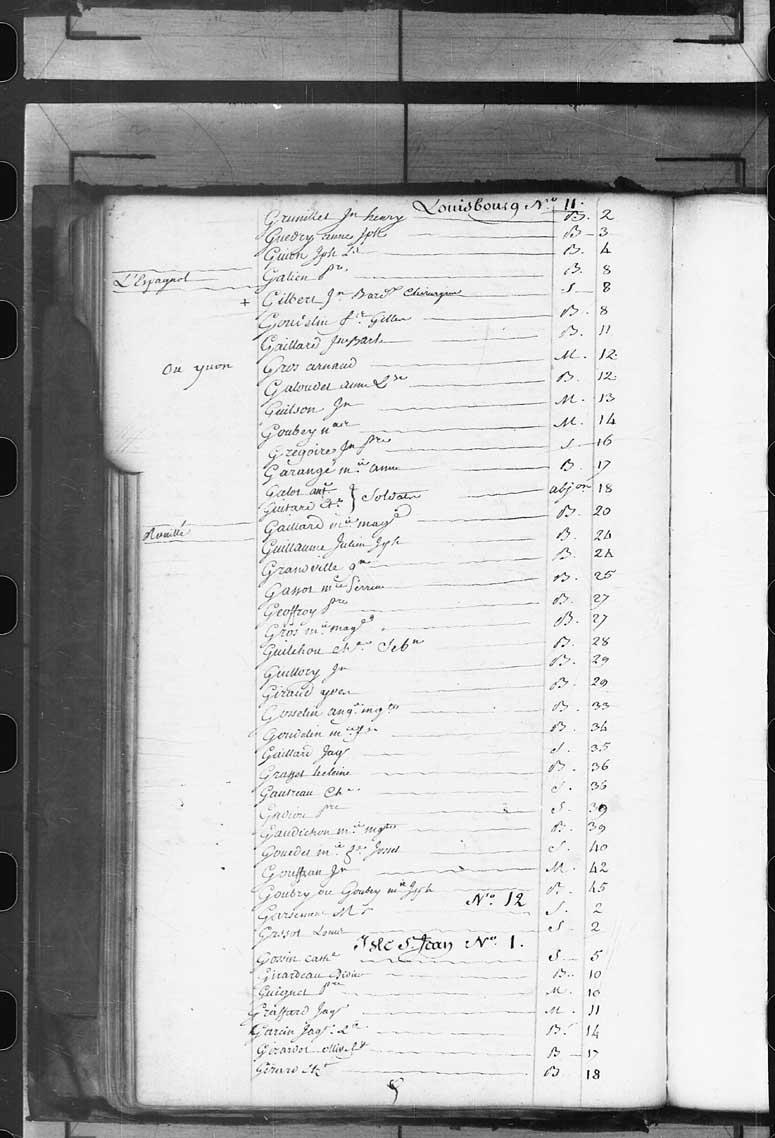 Louisbourg No 11.
Grenillet Jn henry B. 2
Guedry anne Jph B 3
Guion Jph B. 4
L'Espagnol
Galien Pre B. 8
+ Gilbert Jn Bapt Chirurgien S 8
Goudelin Gillen B. 8
Gaillard Jn Bart B. 11
Ou yvon
Gros arnaud M. 12
Galoudet anne B. 12
Guilson Jn M. 13
Goubey M. 14
Gregoire Jn Pre S 16
Garange mie anne B. 17
Galot ant
Guitard } Soldats abjon 18
Gaillard mie magd B. 20
Rouillé
Guillaume Julien Jph B. 24
Grandville B. 24
Gassot mie Perrine B. 25
Geoffroy Pre B. 27
Gros mie magd B. 27
Guilchou Sebn B. 28
Guillory Jn B. 29
Giraud yves B. 29
Gosselin angq mgte B. 33
Goudelin mie B. 34
Gaillard Jaqs S. 35
Grasset heleine B. 36
Gautreau Chs S. 36
Pre S. 39
Gaudichon mie mgte B. 39
Gouedet mie Josset S. 40
Gouffran Jn M. 42
Goubry ou Goubey mie Jph B. 45
No. 12
S. 2
Louis S. 2
Isle St Jean No 1.
Gossin cathe S 5
Girardeau B. 10
Guignet Pre M. 10
Graffard Jaqs M. 11
Garcin Jaqs B. 14
Girardot B 17
Gerard B 18